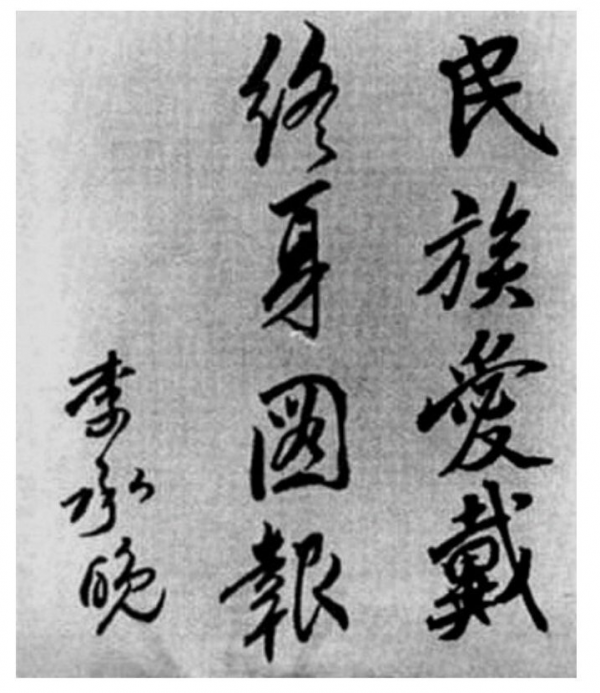 民族愛戴
終身圖報
李承晩